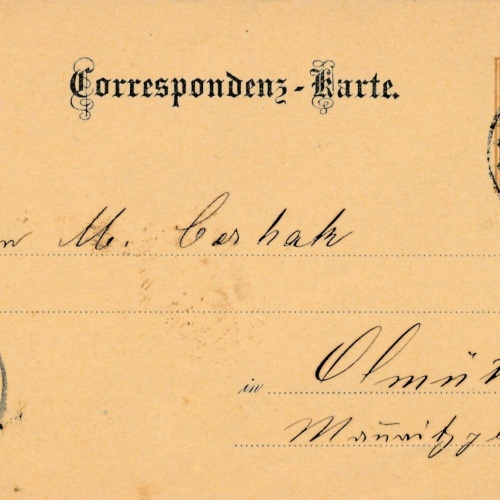 Correspondenz-Karte.
n M. Cershak
in Olmüt
Mauritzg